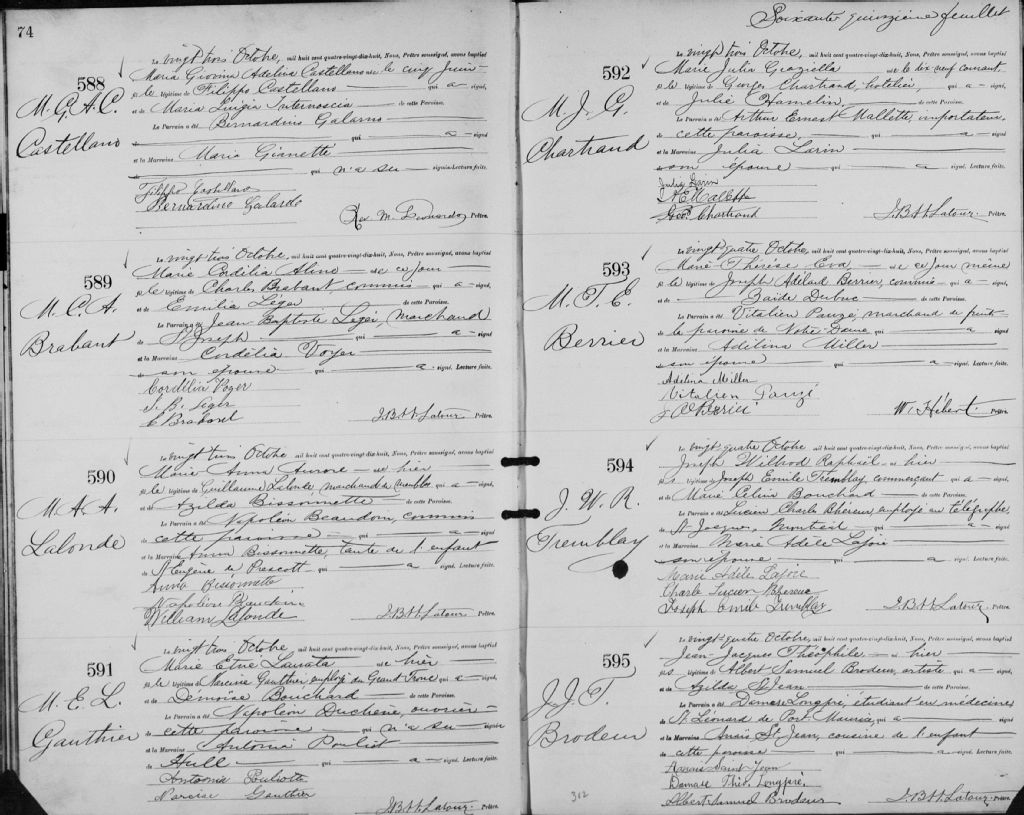 74
588
M. G. A. C.
Castellano
Le vingt trois Octobre, mil huit cent quatre-vingt-dix-huit, Nous, Prêtre soussigné, avons baptisé
Maria Giovina Adelina Castellano née le cinq Juin
fille légitime de Filippo Castellano qui a signé,
et de Maria Luigia Internoscia de cette Paroisse.
Le Parrain a été Bernardino Galarno
qui a signé
et la Marraine Maria Gianette
qui n'a su signer. Lecture faite.
Filippo Castellano
Bernardino Galardo
Rev. M. Leonardo Prêtre.
589
M. C. A.
Brabant
Le vingt trois Octobre, mil huit cent quatre-vingt-dix-huit, Nous, Prêtre soussigné, avons baptisé
Marie Cordélia née ce jour
fille légitime de Charles Brabant commis qui a signé,
et de Emilia Léger de cette Paroisse.
Le Parrain a été Jean-Baptiste Léger, marchand
de St Joseph qui a signé
et la Marraine Cordélia Voyer
son épouse qui a signé. Lecture faite.
Cordélia Voyer
J. B. Leger
C Brabant
J.B.H. Latour Prêtre.
590
M. A. A.
Lalonde
Le vingt trois Octobre mil huit cent quatre-vingt-dix-huit, Nous, Prêtre soussigné, avons baptisé
Marie Anna Aurore née hier
fille légitime de Guillaume Lalonde, marchand de meubles qui a signé,
et de Azilda Bissonnette de cette Paroisse.
Le Parrain a été Napoléon Beaudoin, commis
de cette paroisse qui a signé
et la Marraine Anna Bissonnette, tante de l'enfant
de St Eugène de Prescott qui a signé. Lecture faite.
Anna Bissonnette
Napoléon
William Lalonde
J.B.H. Latour Prêtre.
591
M. E. L.
Gauthier
Le vingt trois Octobre, mil huit cent quatre-vingt-dix-huit, Nous, Prêtre soussigné, avons baptisé
Marie née hier
fille légitime de Narcisse Gauthier employé du Grand Tronc qui a signé,
et de Démoise Bouchard de cette Paroisse.
Le Parrain a été Napoléon Duchêne, ouvrier
de cette paroisse qui n'a su signer
et la Marraine Antonia Pouliot
de Hull qui a signé. Lecture faite.
Antonia Pouliotte
Narcise Gauthier
J.B.H. Latour Prêtre.
Soixante quinzième feuillet
592
M. J. G.
Chartrand
Le vingt trois Octobre, mil huit cent quatre-vingt-dix-huit, Nous, Prêtre soussigné, avons baptisé
Marie Julia Graziella née le dix neuf courant,
fille légitime de Georges Chartrand, hôtelier, qui a signé,
et de Julie Hamelin, de cette Paroisse.
Le Parrain a été Arthur Ernest Mallette, importateur,
de cette paroisse, qui a signé
et la Marraine Julia Larin
son épouse qui a signé. Lecture faite.
Julia Larin
A E Mallette
Geo. Chartrand
J.B.H. Latour Prêtre.
593
M. T. E.
Berrier
Le vingt quatre Octobre, mil huit cent quatre-vingt-dix-huit, Nous, Prêtre soussigné, avons baptisé
Marie Thérèse Eva née ce jour même
fille légitime de Joseph Adélard Berrier, commis qui a signé,
et de Zaïde Dubuc de cette Paroisse.
Le Parrain a été Vitalien Pauzé, marchand de fruit
de la paroisse de Notre-Dame qui a signé
et la Marraine Adélina Miller
son épouse qui a signé. Lecture faite.
Adelina Miller
Vitalien Pauzé
W. Hébert Prêtre.
594
J. W. R.
Tremblay
Le vingt quatre Octobre mil huit cent quatre-vingt-dix-huit, Nous, Prêtre soussigné, avons baptisé
Joseph Wilbrod Raphaël né hier
fils légitime de Joseph Emile Tremblay, commerçant qui a signé,
et de Marie Célina Bouchard de cette Paroisse.
Le Parrain a été Lucien Charles employé au télégraphe,
de St Jacques, Montréal qui a signé
et la Marraine Marie Adèle Lajoie
son épouse qui a signé. Lecture faite.
Marie Adèle Lajoie
Charle Lucien
Joseph Emile Tremblay
J.B.H. Latour Prêtre.
595
J. J. T.
Brodeur
Le vingt-quatre Octobre, mil huit cent quatre-vingt-dix-huit, Nous, Prêtre soussigné, avons baptisé
Jean-Jacques Théophile né hier
fils légitime de Albert Samuel Brodeur, artiste qui a signé,
et de Azilda St Jean de cette Paroisse.
Le Parrain a été Damase Longpré, étudiant en médecine,
de St Léonard de Port Maurice qui a signé
et la Marraine Anaïs St Jean, cousine de l'enfant
de cette paroisse qui a signé. Lecture faite.
Anais Saint-Jean
Damase Théo. Longpré,
Albert Samuel Brodeur
J.B.H. Latour Prêtre.
312